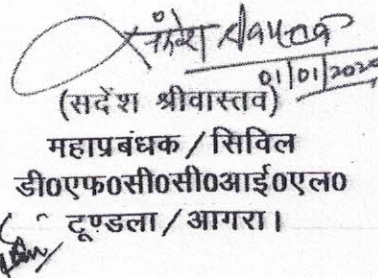 संदेश श्रीवास्तव
01/01/2020
(सदेंश श्रीवास्तव)
महाप्रबंधक / सिविल
डी0एफ0सी0सी0आई0एल0
टूण्डला / आगरा।